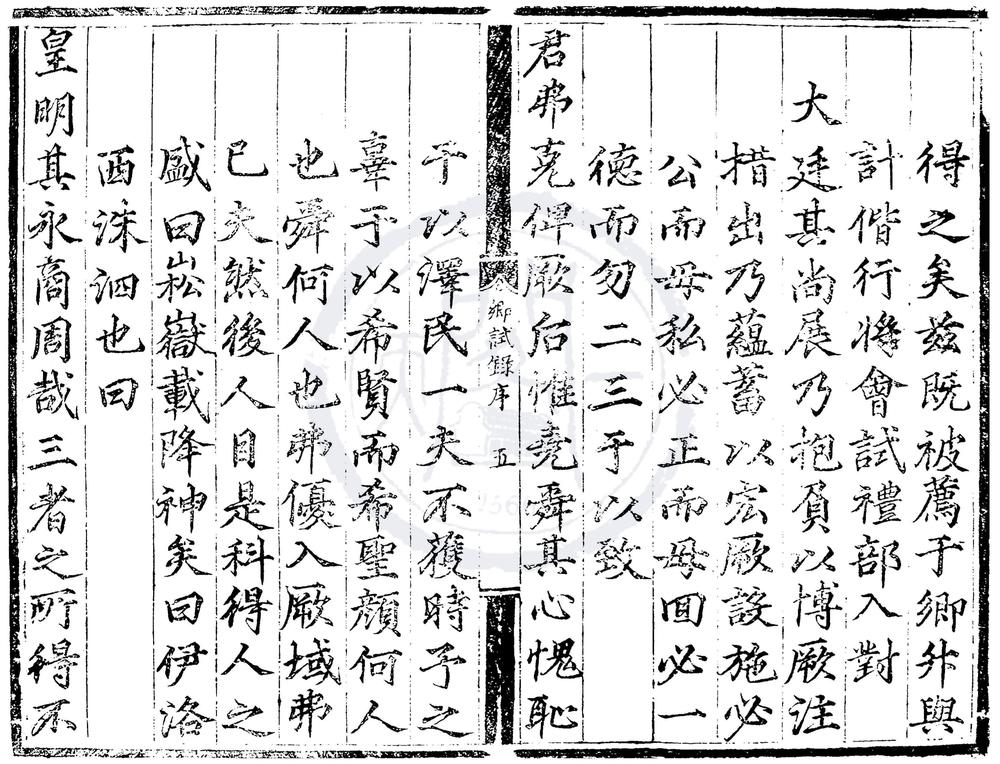 得之矣茲既被薦于鄉升與
計偕行將會試禮部入對
大廷其尚展乃抱負以愽厥注
措出乃蘊蓄以宏厥設施必
公而毋私必正而毋回必一
德而勿二三于以致
君弗克俾厥后惟堯舜其心愧恥
鄉試錄序 五
于以澤民一夫不獲時予之
辜于以希賢而希聖顏何人
也舜何人也弗優入厥域弗
已夫然後人目是科得人之
盛曰崧嶽載降神矣曰伊洛
洒洙泗也曰
皇明其永商周哉三者之所得不